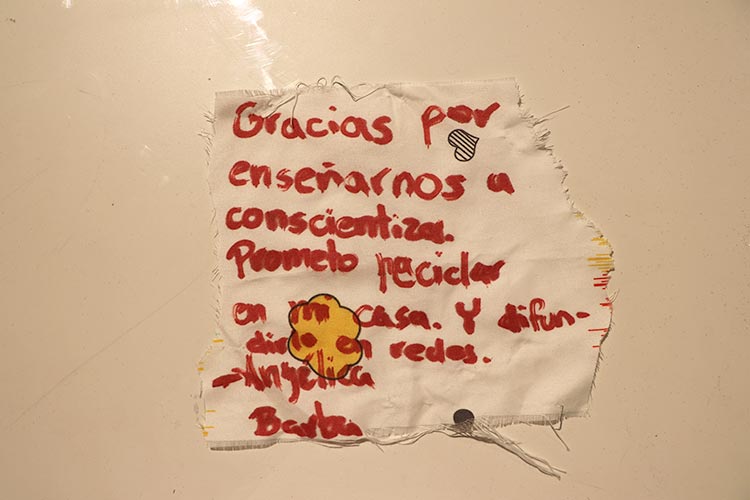 Gracias por
enseñarnos a
conscientizar.
Prometo reciclar
en mi casa. Y difun-
dirlo en redes.
-Angélica
Barba